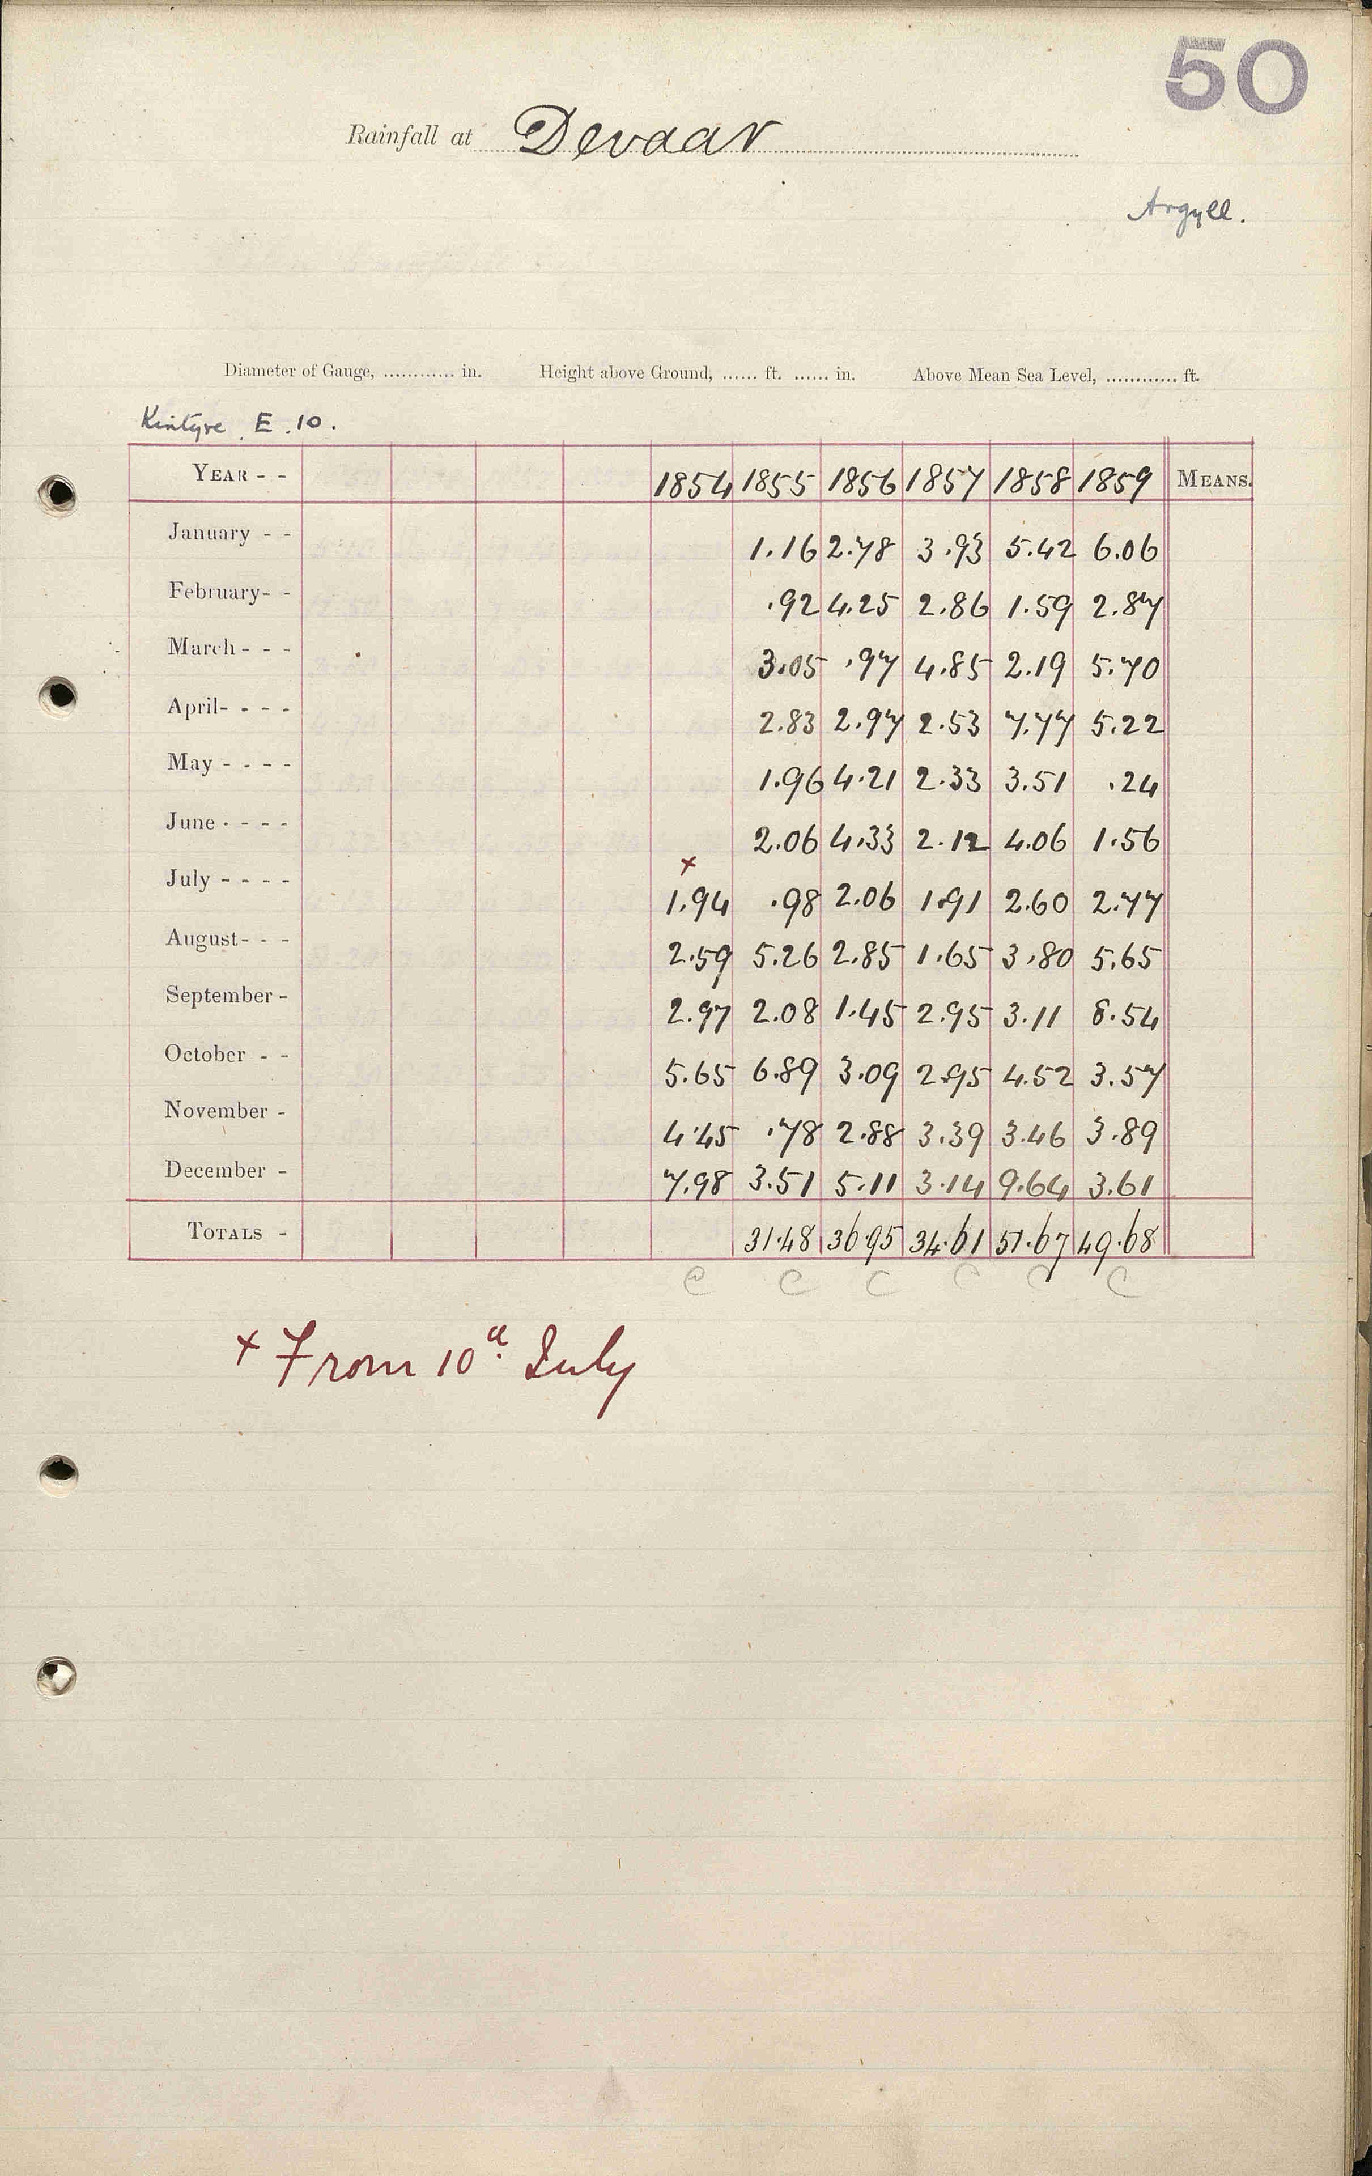 50
Rainfall at Devaar
Argyll.
Diameter of Gauge, ............ in. Height above Ground, ...... ft. ...... in. Above Mean Sea Level, ............ ft.
Kintyre E.10.
YEAR - - 1854 1855 1856 1857 1858 1859 MEANS.
January - - 1.16 2.78 3.93 5.42 6.06
February- - .92 4.25 2.86 1.59 2.87
March - - - 3.05 .97 4.85 2.19 5.70
April- - - - 2.83 2.97 2.53 7.77 5.22
May - - - - 1.96 4.21 2.33 3.51 .24
June - - - - 2.06 4.33 2.12 4.06 1.56
x
July - - - - 1.94 .98 2.06 1.91 2.60 2.77
August- - - 2.59 5.26 2.85 1.65 3.80 5.65
September - 2.97 2.08 1.45 2.95 3.11 8.54
October - - 5.65 6.89 3.09 2.95 4.52 3.57
November - 4.45 .78 2.88 3.39 3.46 3.89
December - 7.98 3.51 5.11 3.14 9.64 3.61
TOTALS - 31.48 36.95 34.61 51.67 49.68
C C C C C C
x From 10th July